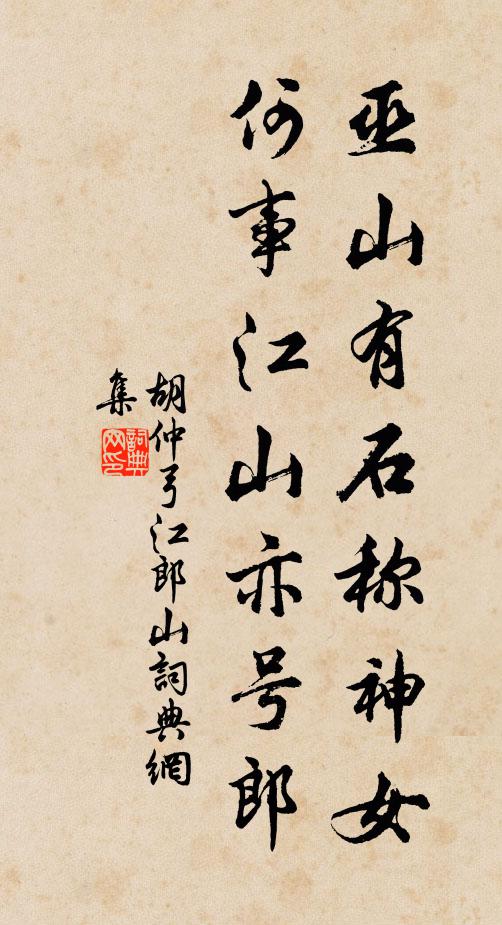 巫山有石称神女
何事江山亦号郎
胡仲弓江郎山詞典網
集
詞典
网印